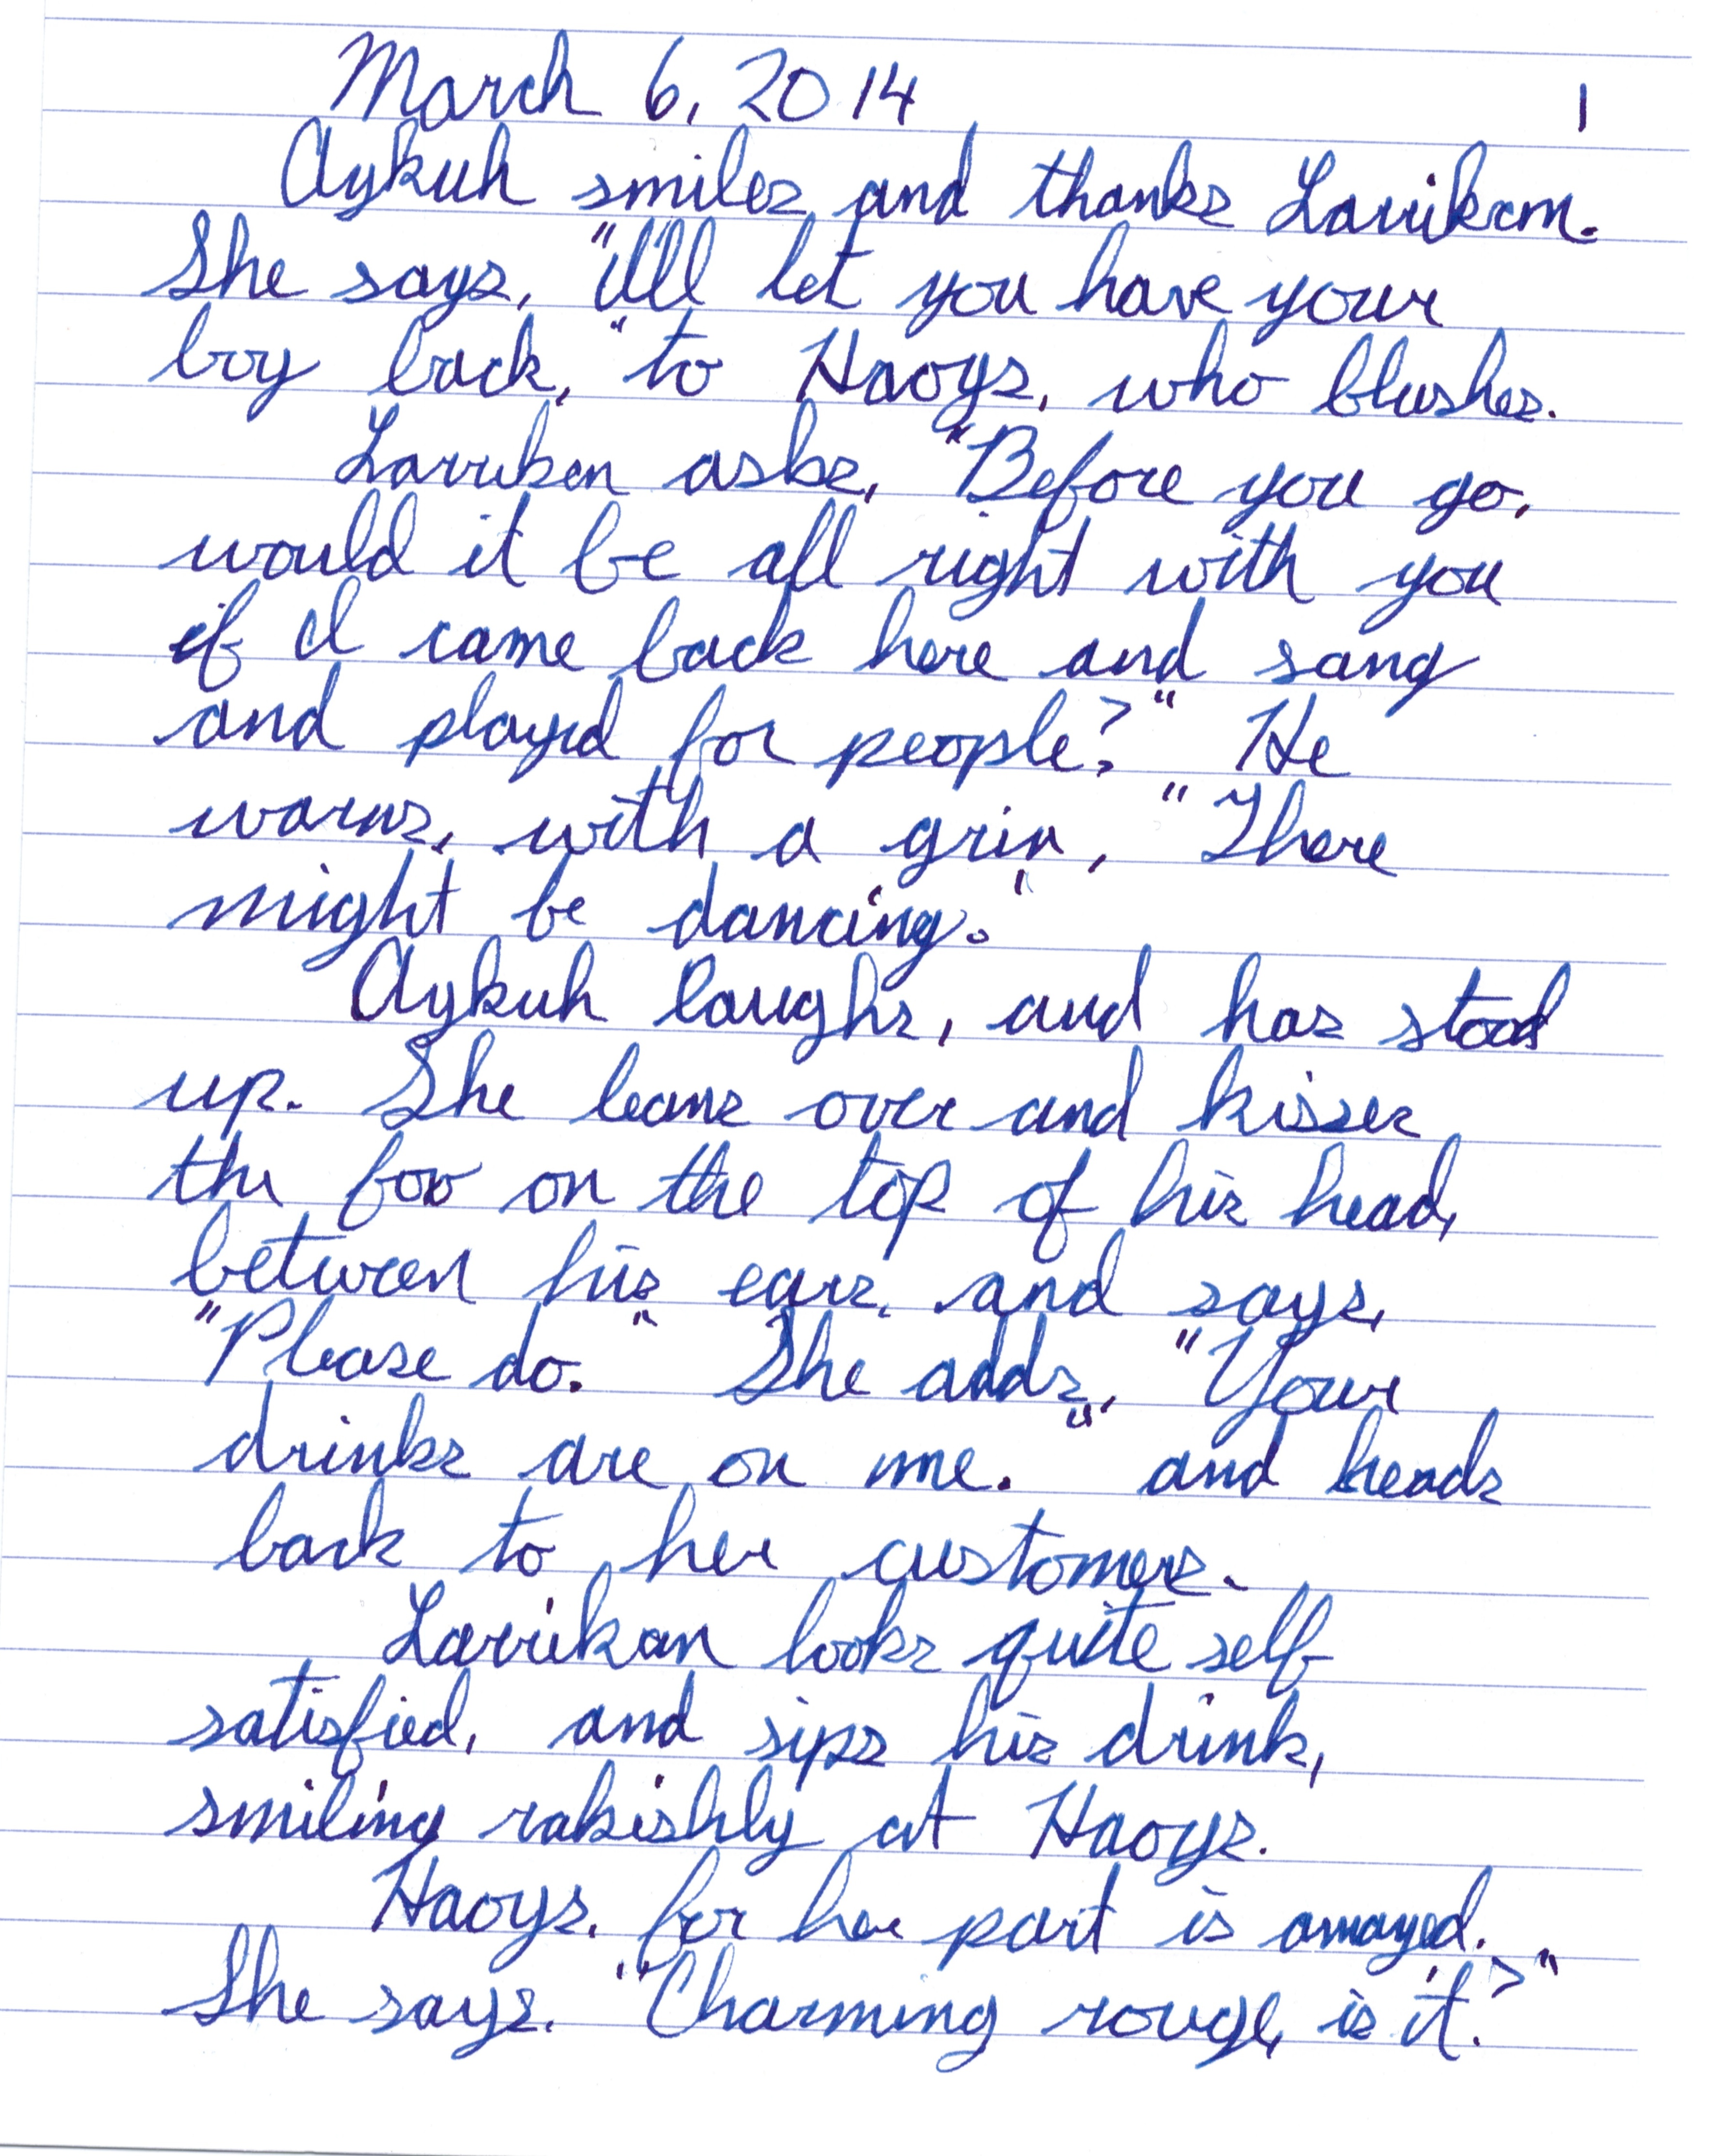 March 6, 2014 1
Aykuh smiles and thanks Larrikan.
She says, "I'll let you have your
boy back," to Haoys, who blushes.
Larrikan asks, "Before you go,
would it be all right with you
if I came back here and sang
and played for people?" He
warns, with a grin, "There
might be dancing."
Aykuh laughs, and has stood
up. She leans over and kisses
the foo on the top of his head,
between his ears, and says,
"Please do." She adds, "Your
drinks are on me." and heads
back to her customers.
Larrikan looks quite self
satisfied, and sips his drink,
smiling rakishly at Haoys.
Haoys, for her part is amazed.
She says, "Charming rouge, is it?"